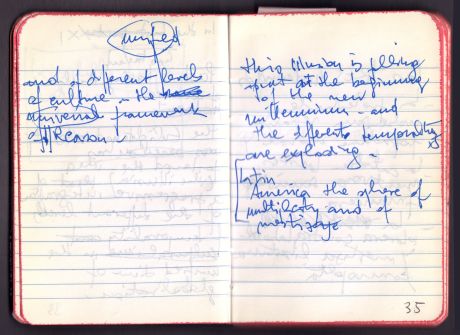 unified
and of different levels
of culture in the
universal framework
of Reason.
this illusion is falling
apart at the beginning
of the new
millennium - and
the different temporality
are exploding.
Latin
America the sphere of
multiplicity and of
mestizaje
35